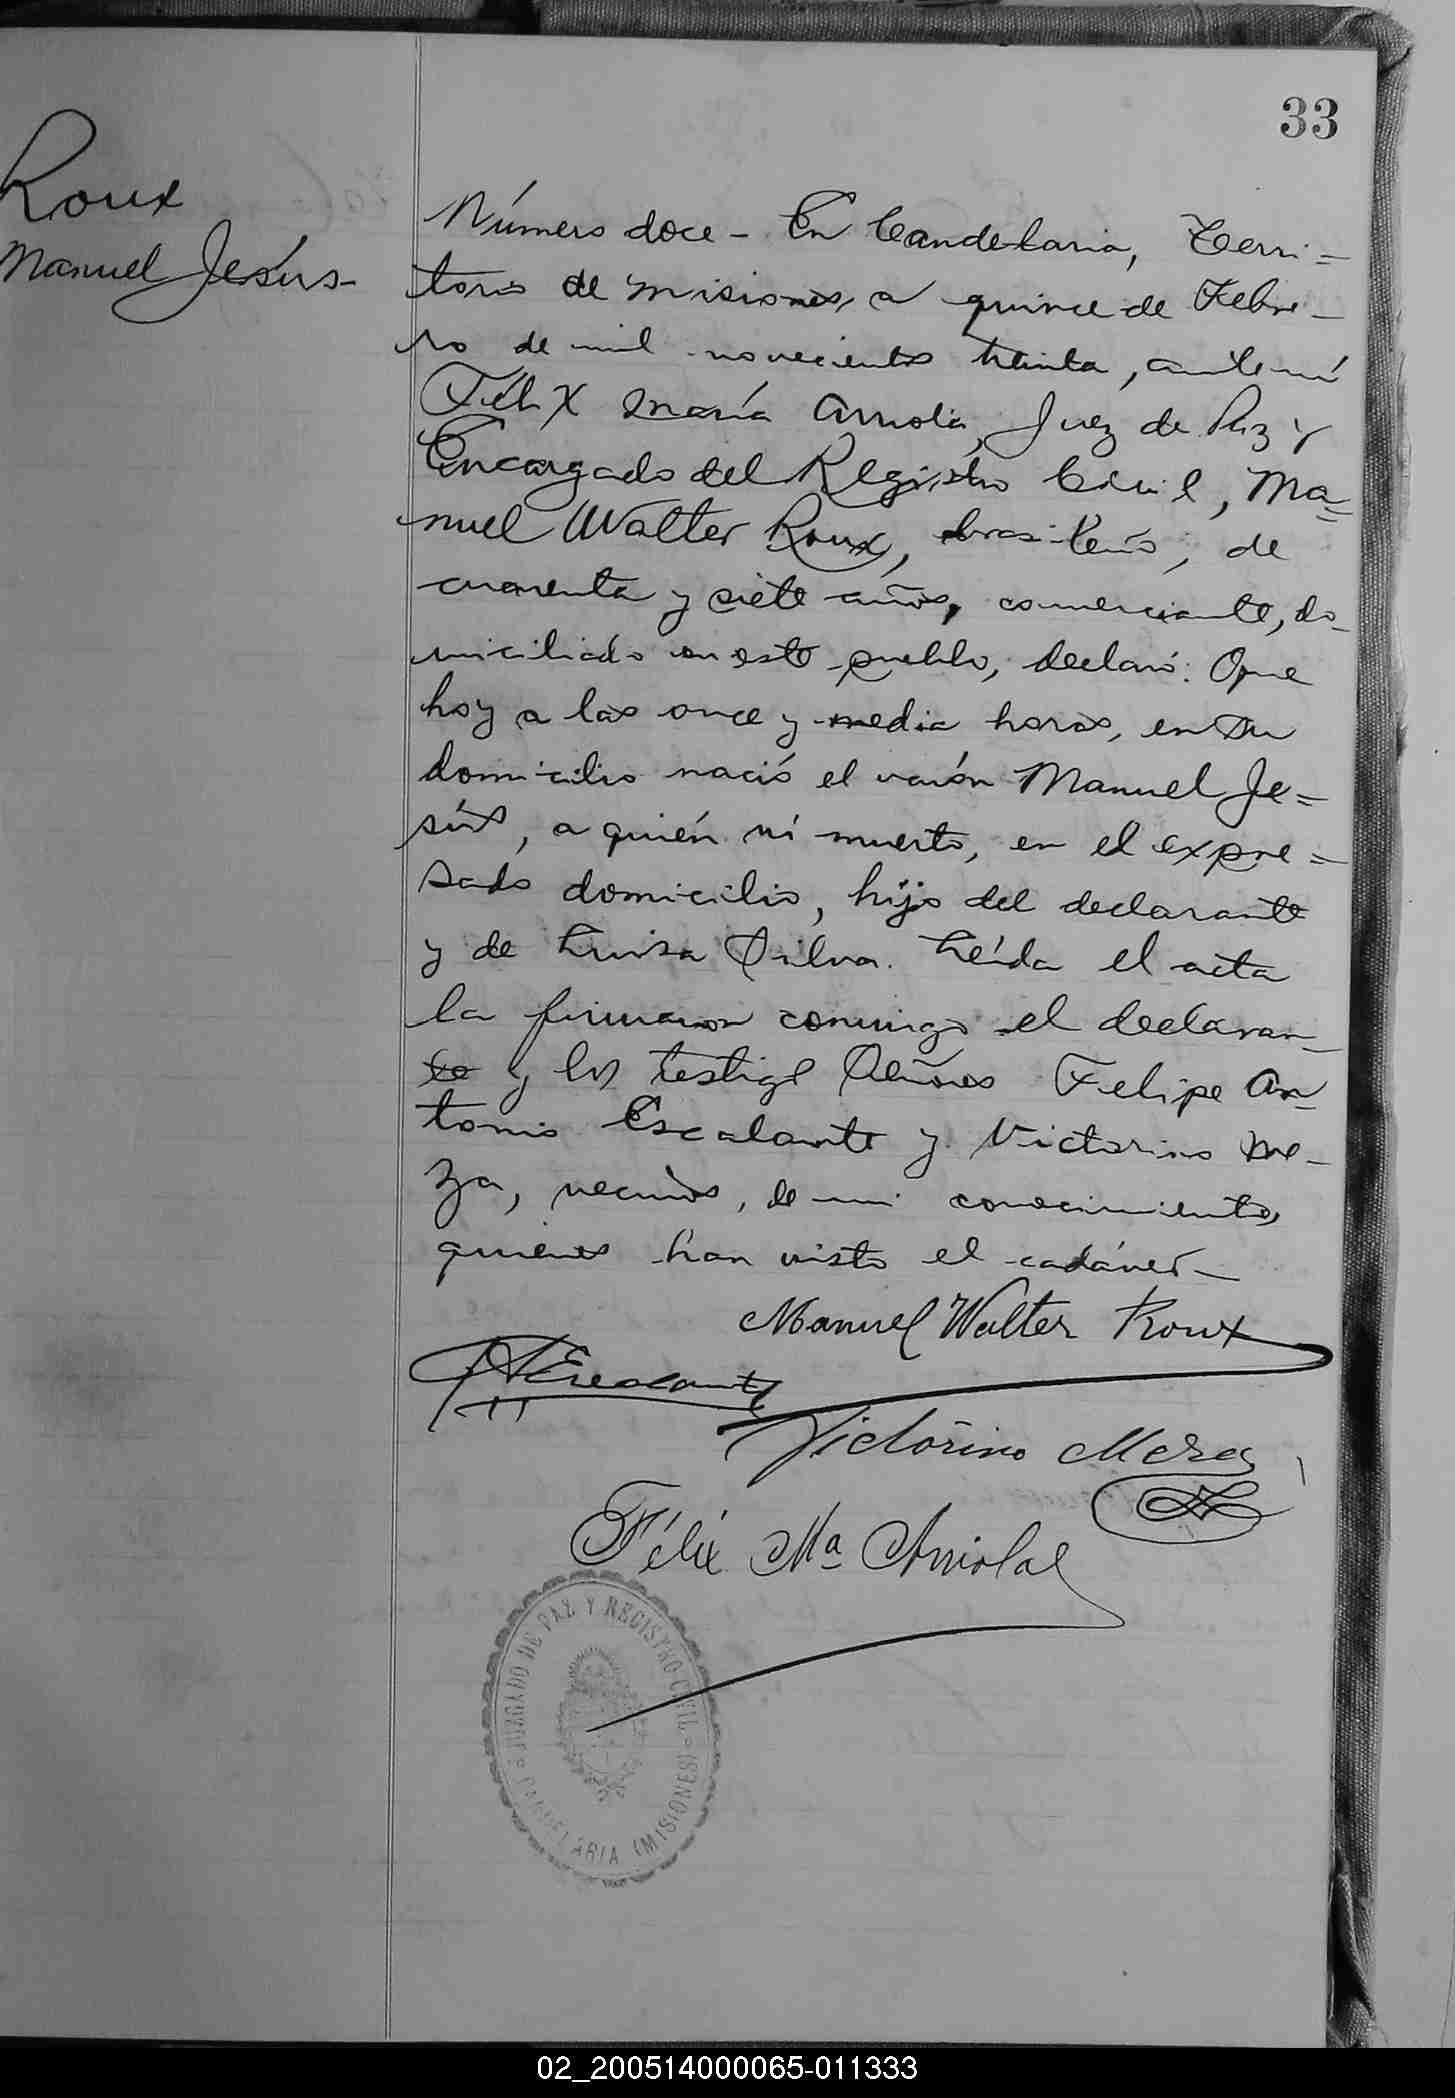 33
Roux
Manuel Jesús-
Número doce - En Candelaria, Terri=
torio de Misiones, a quince de Febre-
ro de mil novecientos treinta, ante mí
Félix María Arriola, Juez de Paz y
Encargado del Registro Civil, Ma=
nuel Walter Roux, brasileño, de
cuarenta y siete años, comerciante, do-
miciliado en este pueblo, declaró: Que
hoy a las once y media horas, en su
domicilio nació el varón Manuel Je=
sús, a quién ví muerto, en el expre=
sado domicilio, hijo del declarante
y de Luisa Silva. Leída el acta
la firmaron conmigo el declaran-
te y los testigos Señores Felipe An-
tonio Escalante y Victorino Me-
za, vecinos, de mi conocimiento,
quienes han visto el cadáver-
Manuel Walter Roux
Escalante
Victorino Meza
Félix Ma Arriola
JUZGADO DE PAZ Y REGISTRO CIVIL
CANDELARIA (MISIONES)
02_200514000065-011333